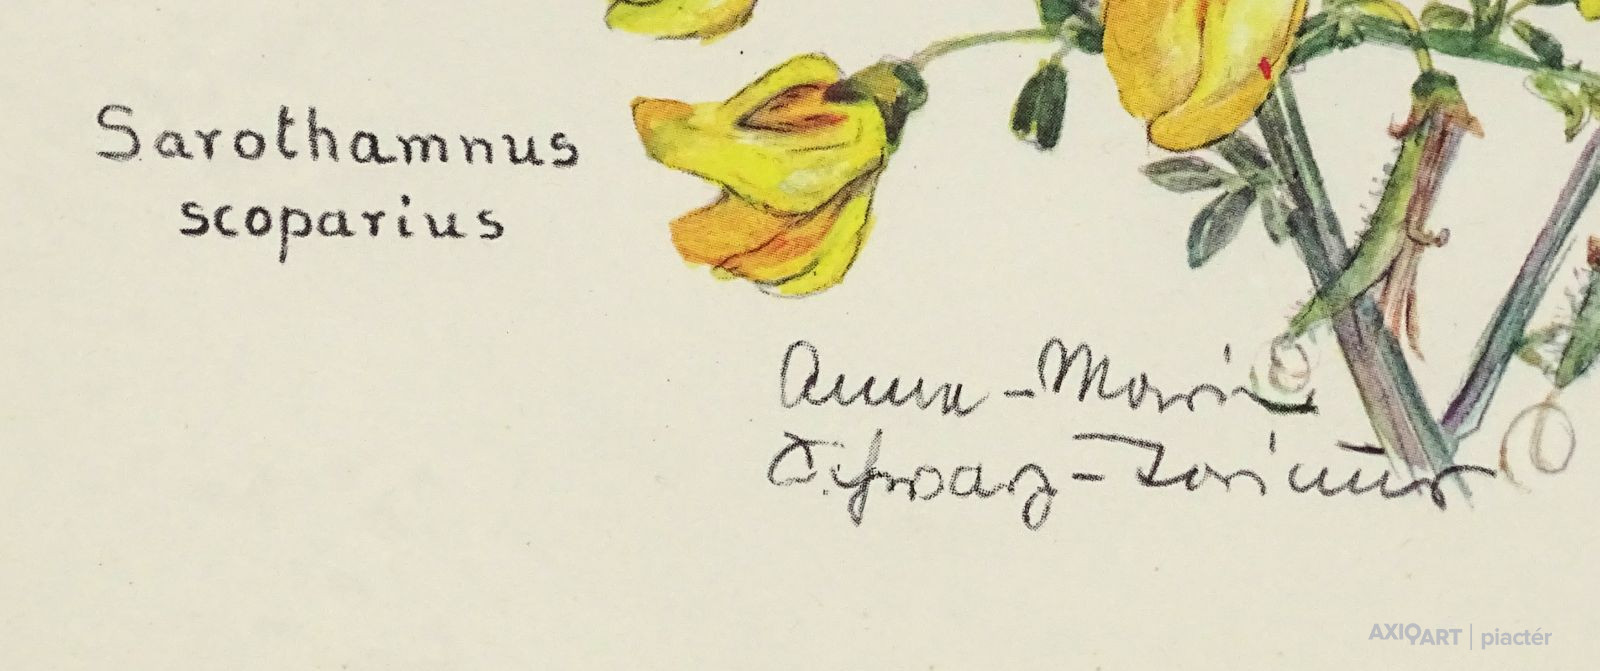 Sarothamnus
scoparius
Anna-Maria
Schwarz-Torinus
AXIOART | piactér